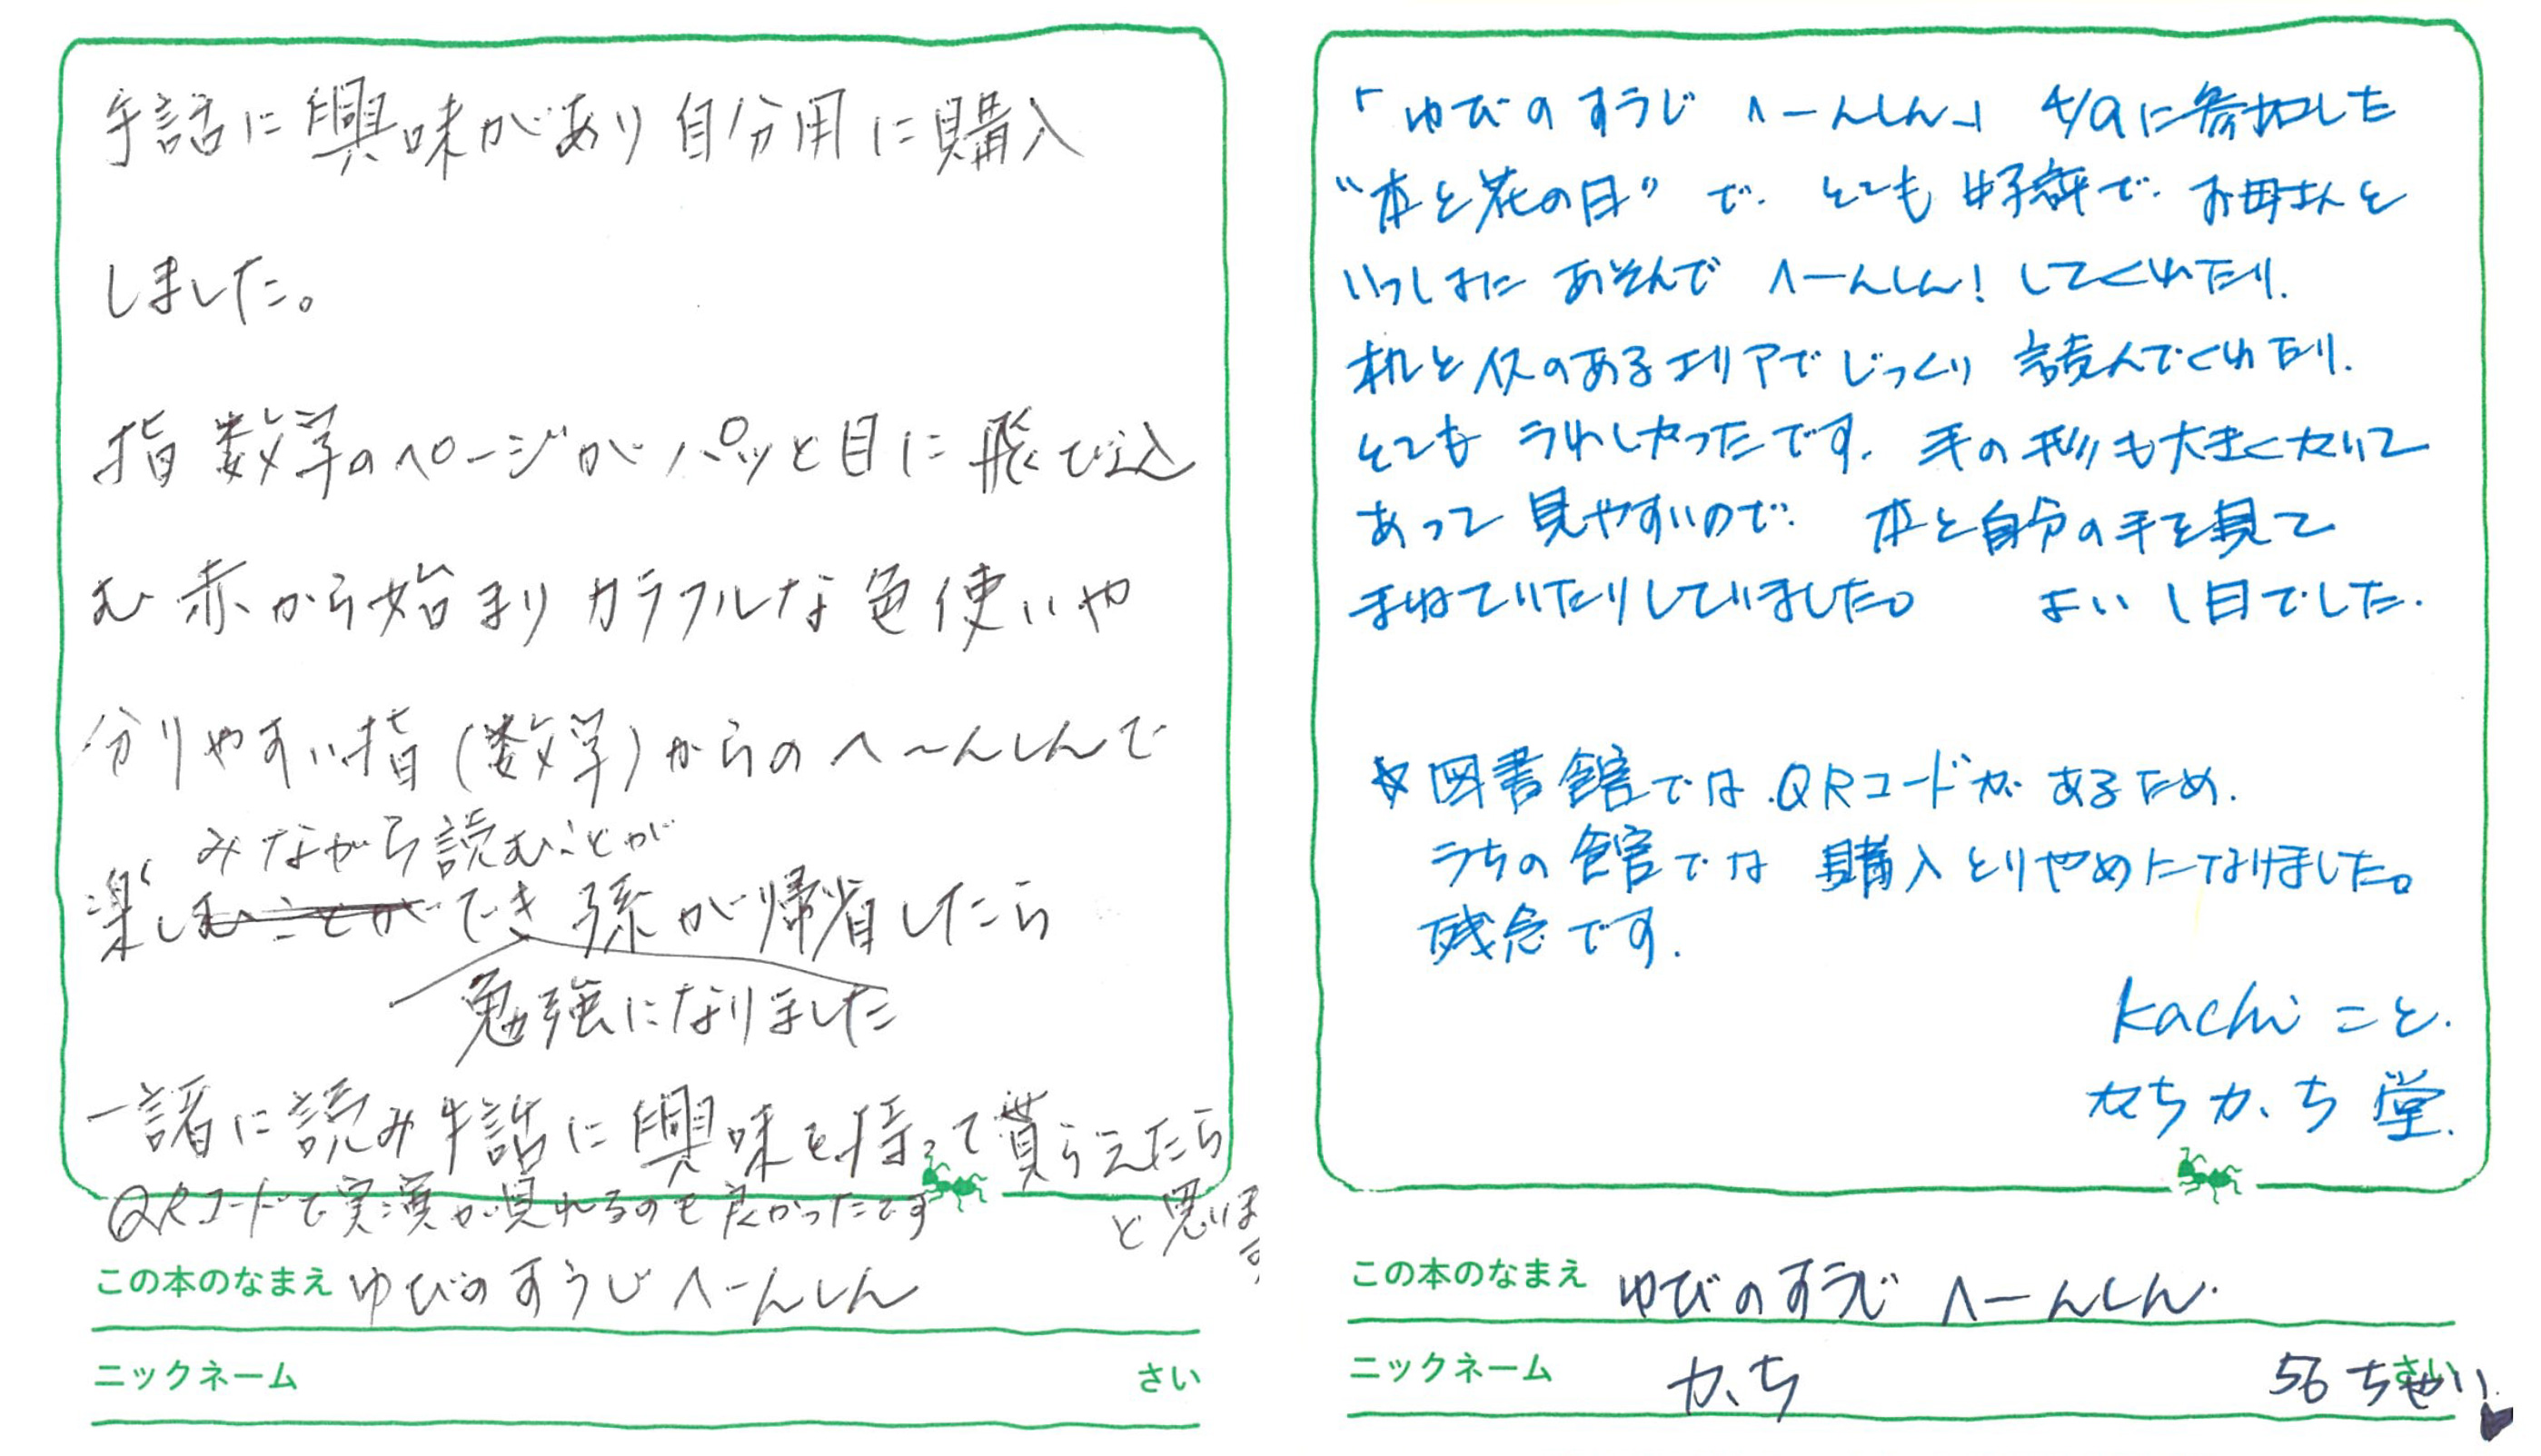 手話に興味があり自分用に購入
しました。
指数字のページがパッと目に飛び込
む赤から始まりカラフルな色使いや
分りやすい指(数字)からのへ〜んしんで
みながら読むことが
楽しむことができ孫が帰省したら
勉強になりました
一諸に読み手話に興味を持って貰らえたら
と思います
QRコードで実演が見れるのも良かったです
この本のなまえ ゆびのすうじへーんしん
ニックネーム さい
「ゆびのすうじ へーんしん」 4/9に参加した
“本と花の日” で、とても好評で、お母さんと
いっしょに あそんで へーんしん! してくれたり、
机とイスのあるエリアでじっくり 読んでくれたり、
とても うれしかったです。手の形も大きくかいて
あって 見やすいので、本と自分の手を見て
まねていたりしていました。 よい1日でした。
☆図書館では、QRコードが あるため、
うちの館では 購入とりやめになりました。
残念です。
kachiこと、
かちかち堂.
この本のなまえ ゆびのすうじ へーんしん.
ニックネーム かち 56ちゃい さい